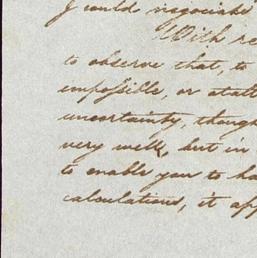 I could negociate
With re
to observe that, to
impossible, or stat
uncertainty, though
very well, but in
to enable you to ha
calculations, it app